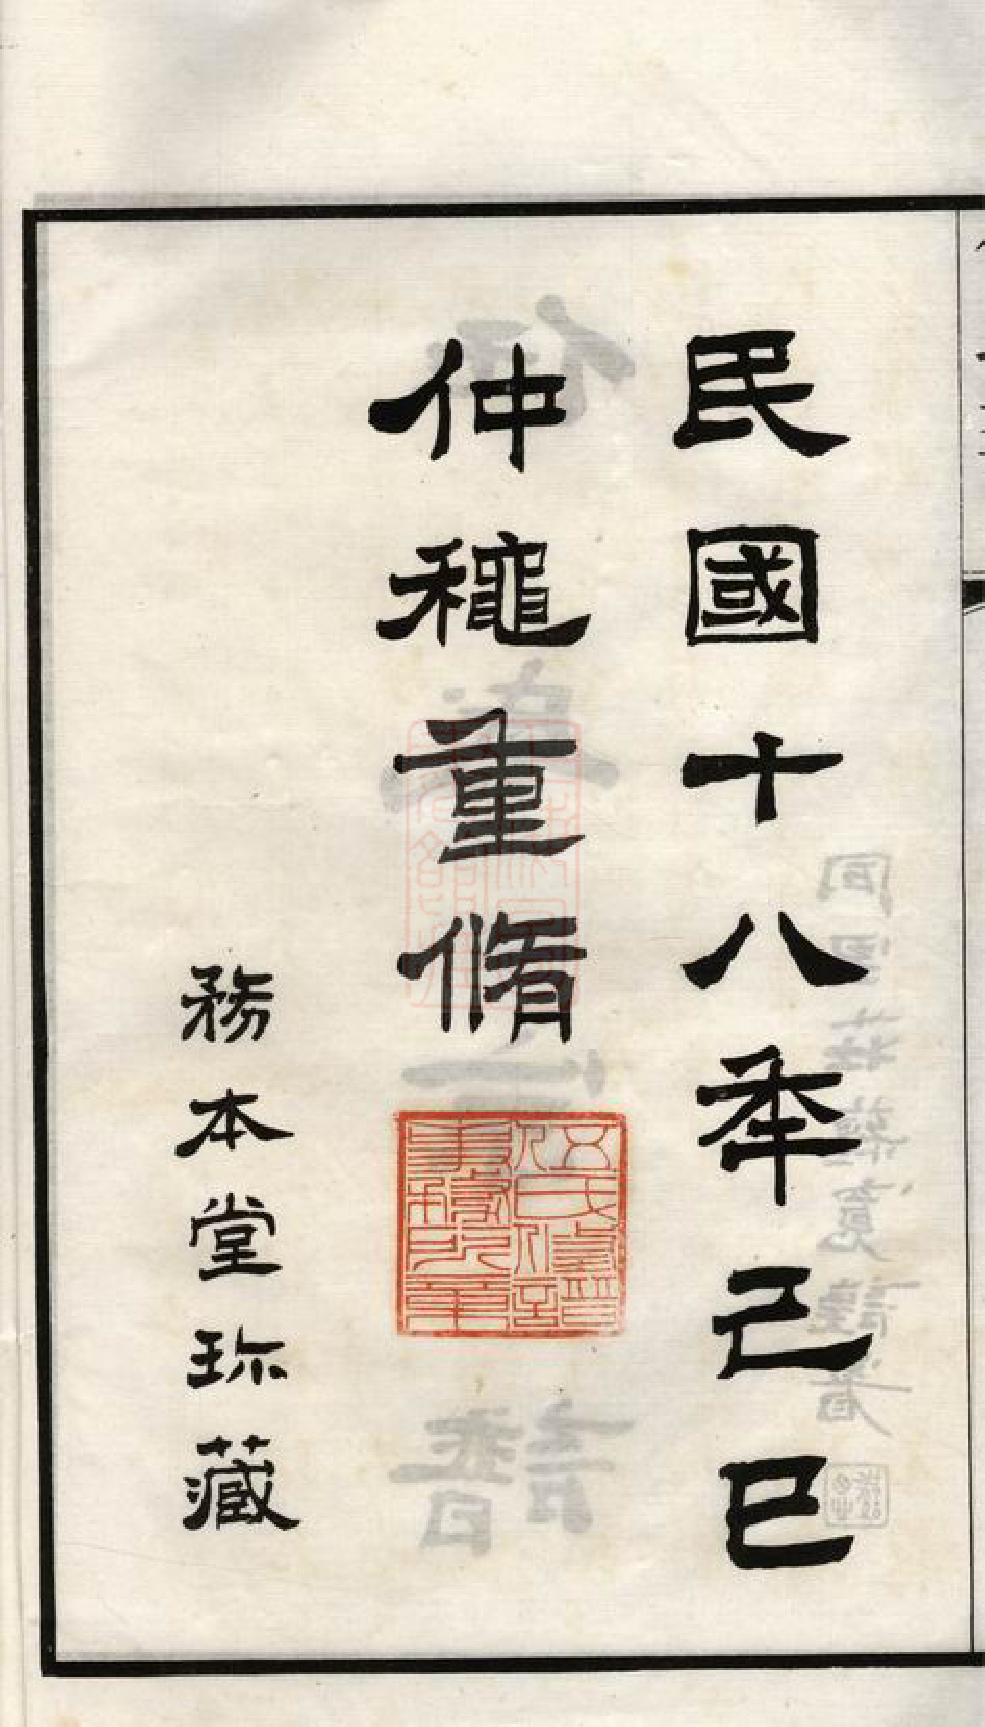 民國十八秊己巳
仲穐重脩
務本堂珎藏